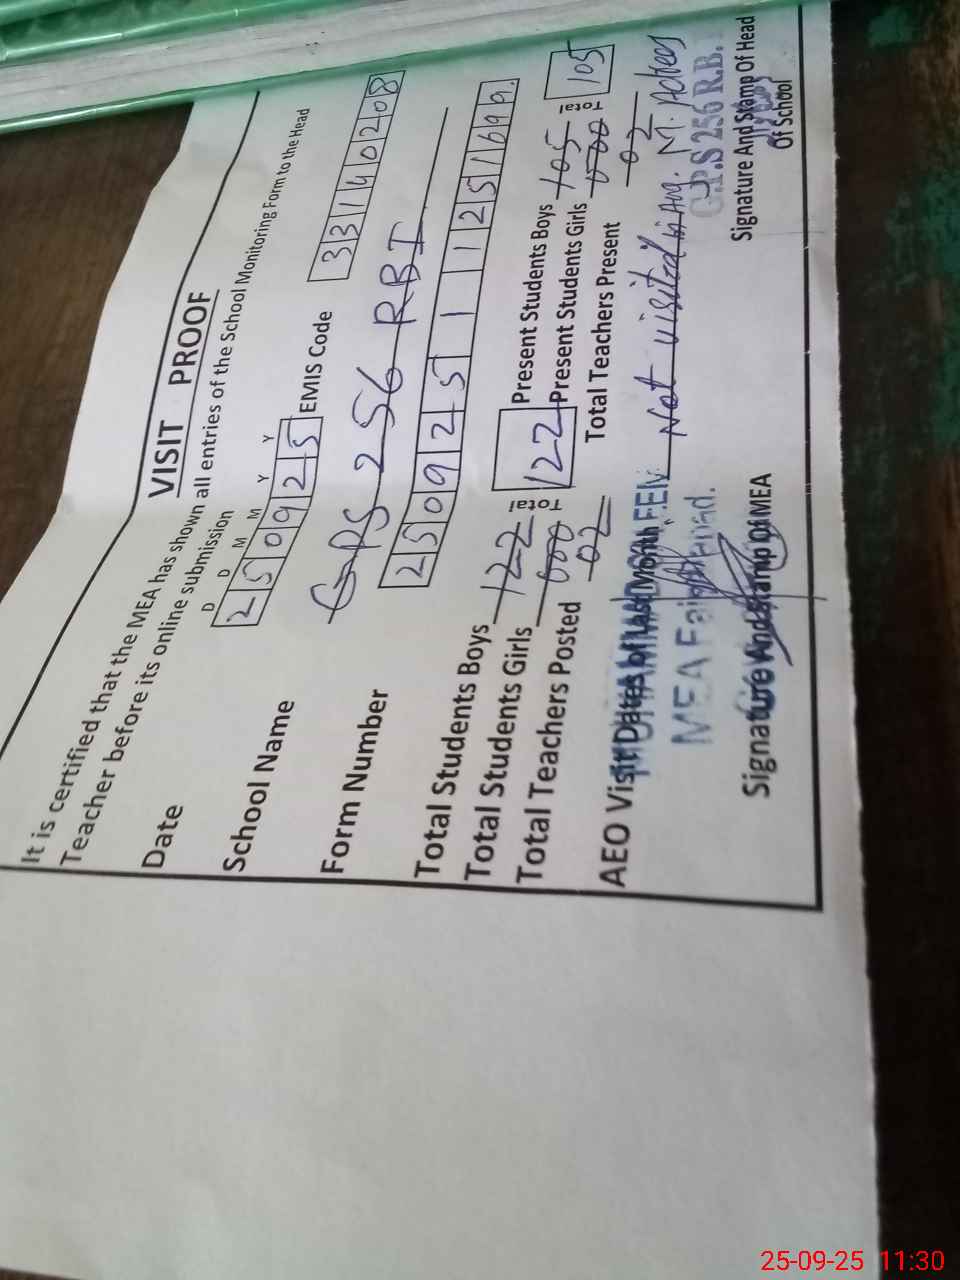 VISIT PROOF
It is certified that the MEA has shown all entries of the School Monitoring Form to the Head
Teacher before its online submission
D D M M Y Y
Date 250925 EMIS Code 33140208
School Name GPS 256 RBI
Form Number 250925111251699
Total Students Boys 122 Total 122 Present Students Boys 105 Total 105
Total Students Girls 000 Present Students Girls 000
Total Teachers Posted 02 Total Teachers Present 02
AEO Visit Dates of Last Month Not visited in Aug.
MEA
G.P.S 256 R.B.
Signature And Stamp Of MEA
Signature And Stamp Of Head
Of School
25-09-25 11:30